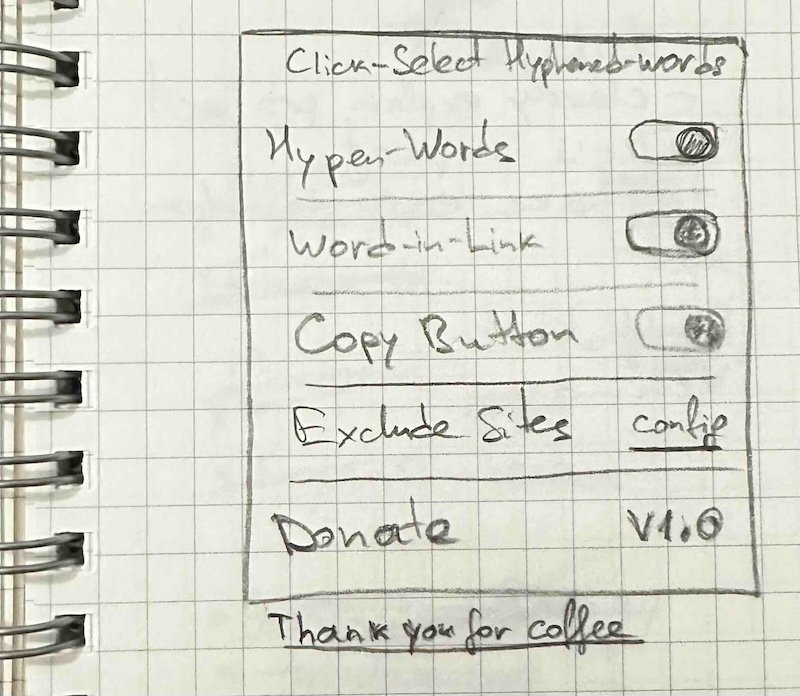 Click-Select Hyphened-words
Hypen-Words
Word-in-Link
Copy Button
Exclude Sites config
Donate V1.0
Thank you for coffee